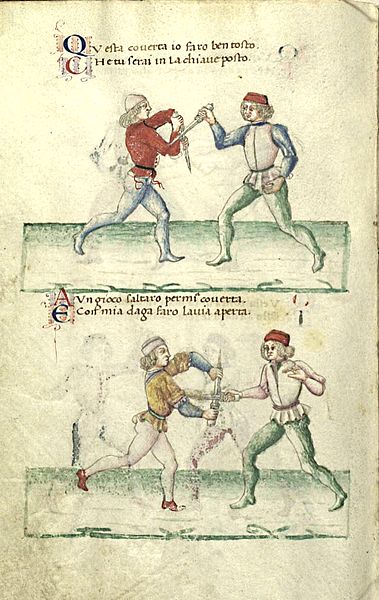 QVesta couerta io faro ben tosto.
CHe tu serai in la chiaue posto.
A Vn gioco saltaro per mi couerta.
E Con mia daga faro lauia aperta.